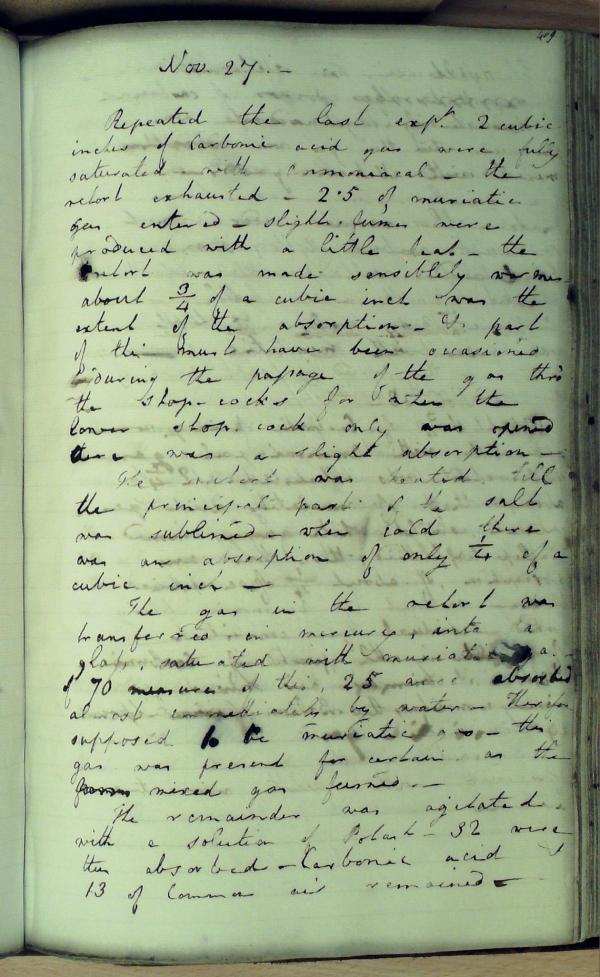 409
Nov. 27. -
Repeated the last expt. 2 cubic
inches of Carbonic acid gas were fully
saturated with ammoniacal - the
retort exhausted - 2.5 of muriatic
gas entered - slight fumes were
produced with a little heat - the
retort was made sensiblely warmer
about 3/4 of a cubic inch was the
extent of the absorption - part
of this must have been occasioned
during the passage of the gas thro
the stop-cocks for when the
lower stop-cock only was opened
there was a slight absorption -
The retort was heated till
the principal part of the salt
was sublimed - when cold there
was an absorption of only 1/4 of a
cubic inch -
The gas in the retort was
transferred in mercury, into a
glass, saturated with muriatic
of 70 measures of this, 25 were absorbed
almost immediately by water -
supposed to be muriatic - this
gas was present for certain as the
mixed gas fumed. -
The remainder was agitated
with a solution of Potash - 32 were
then absorbed - Carbonic acid
13 of Common air remained -